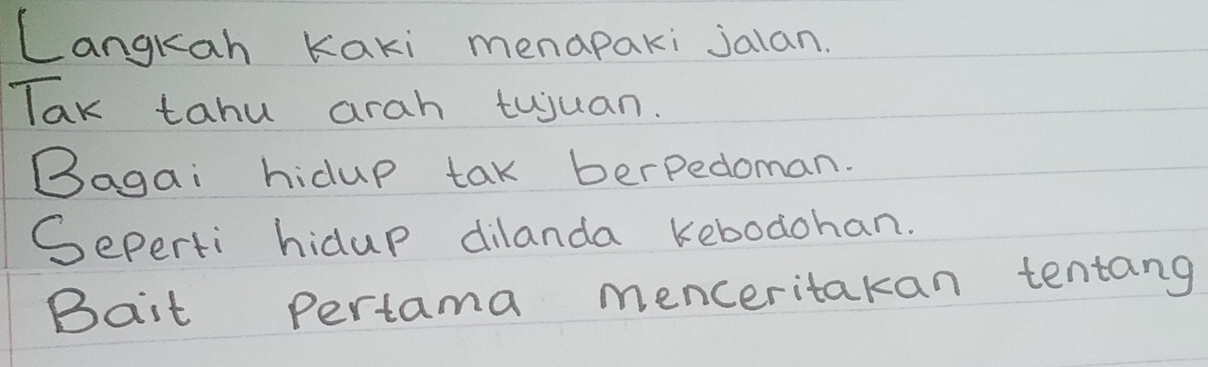 Langkah kaki menapaki jalan.
Tak tahu arah tujuan.
Bagai hidup tak berpedoman.
Seperti hidup dilanda kebodohan.
Bait pertama menceritakan tentang